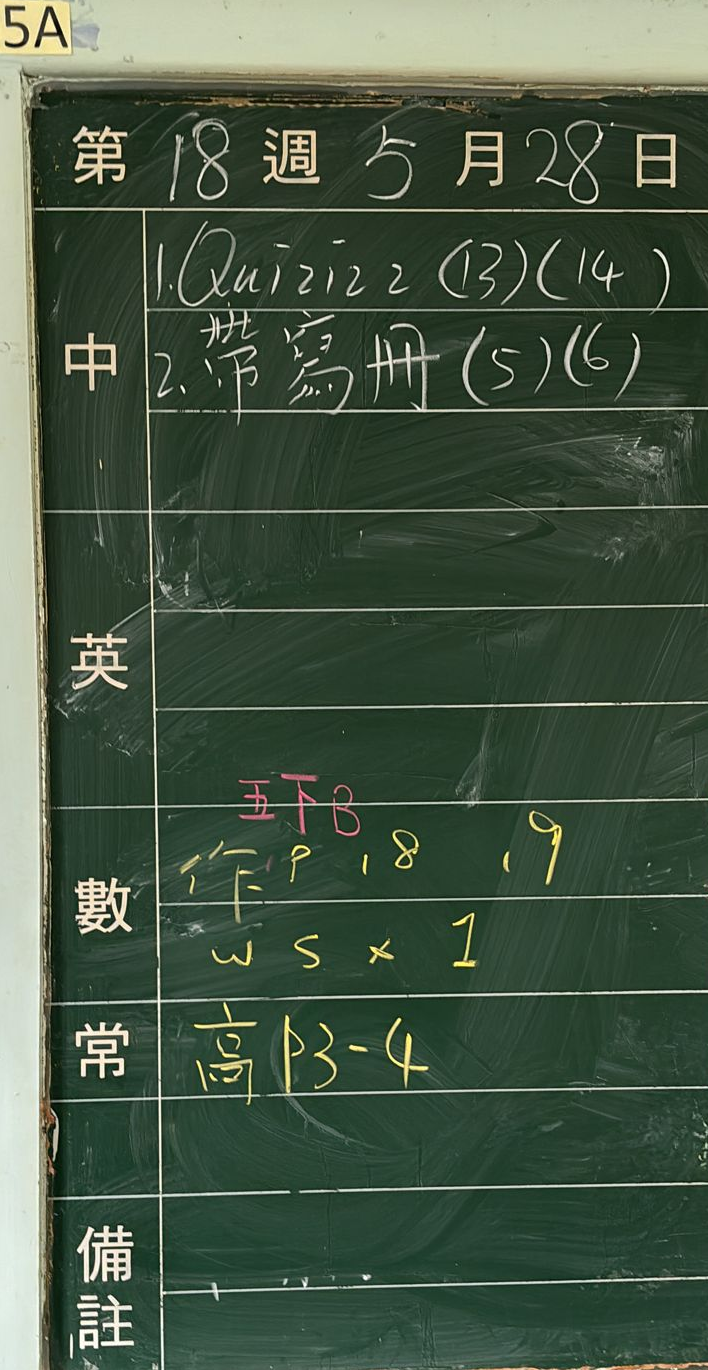 5A
第 18 週 5 月 28 日
中
1. Quizizz (13)(14)
2. 帶寫冊 (5)(6)
英
五下B
數
作 P.18 , 19
WS × 1
常
高 P3-4
備註